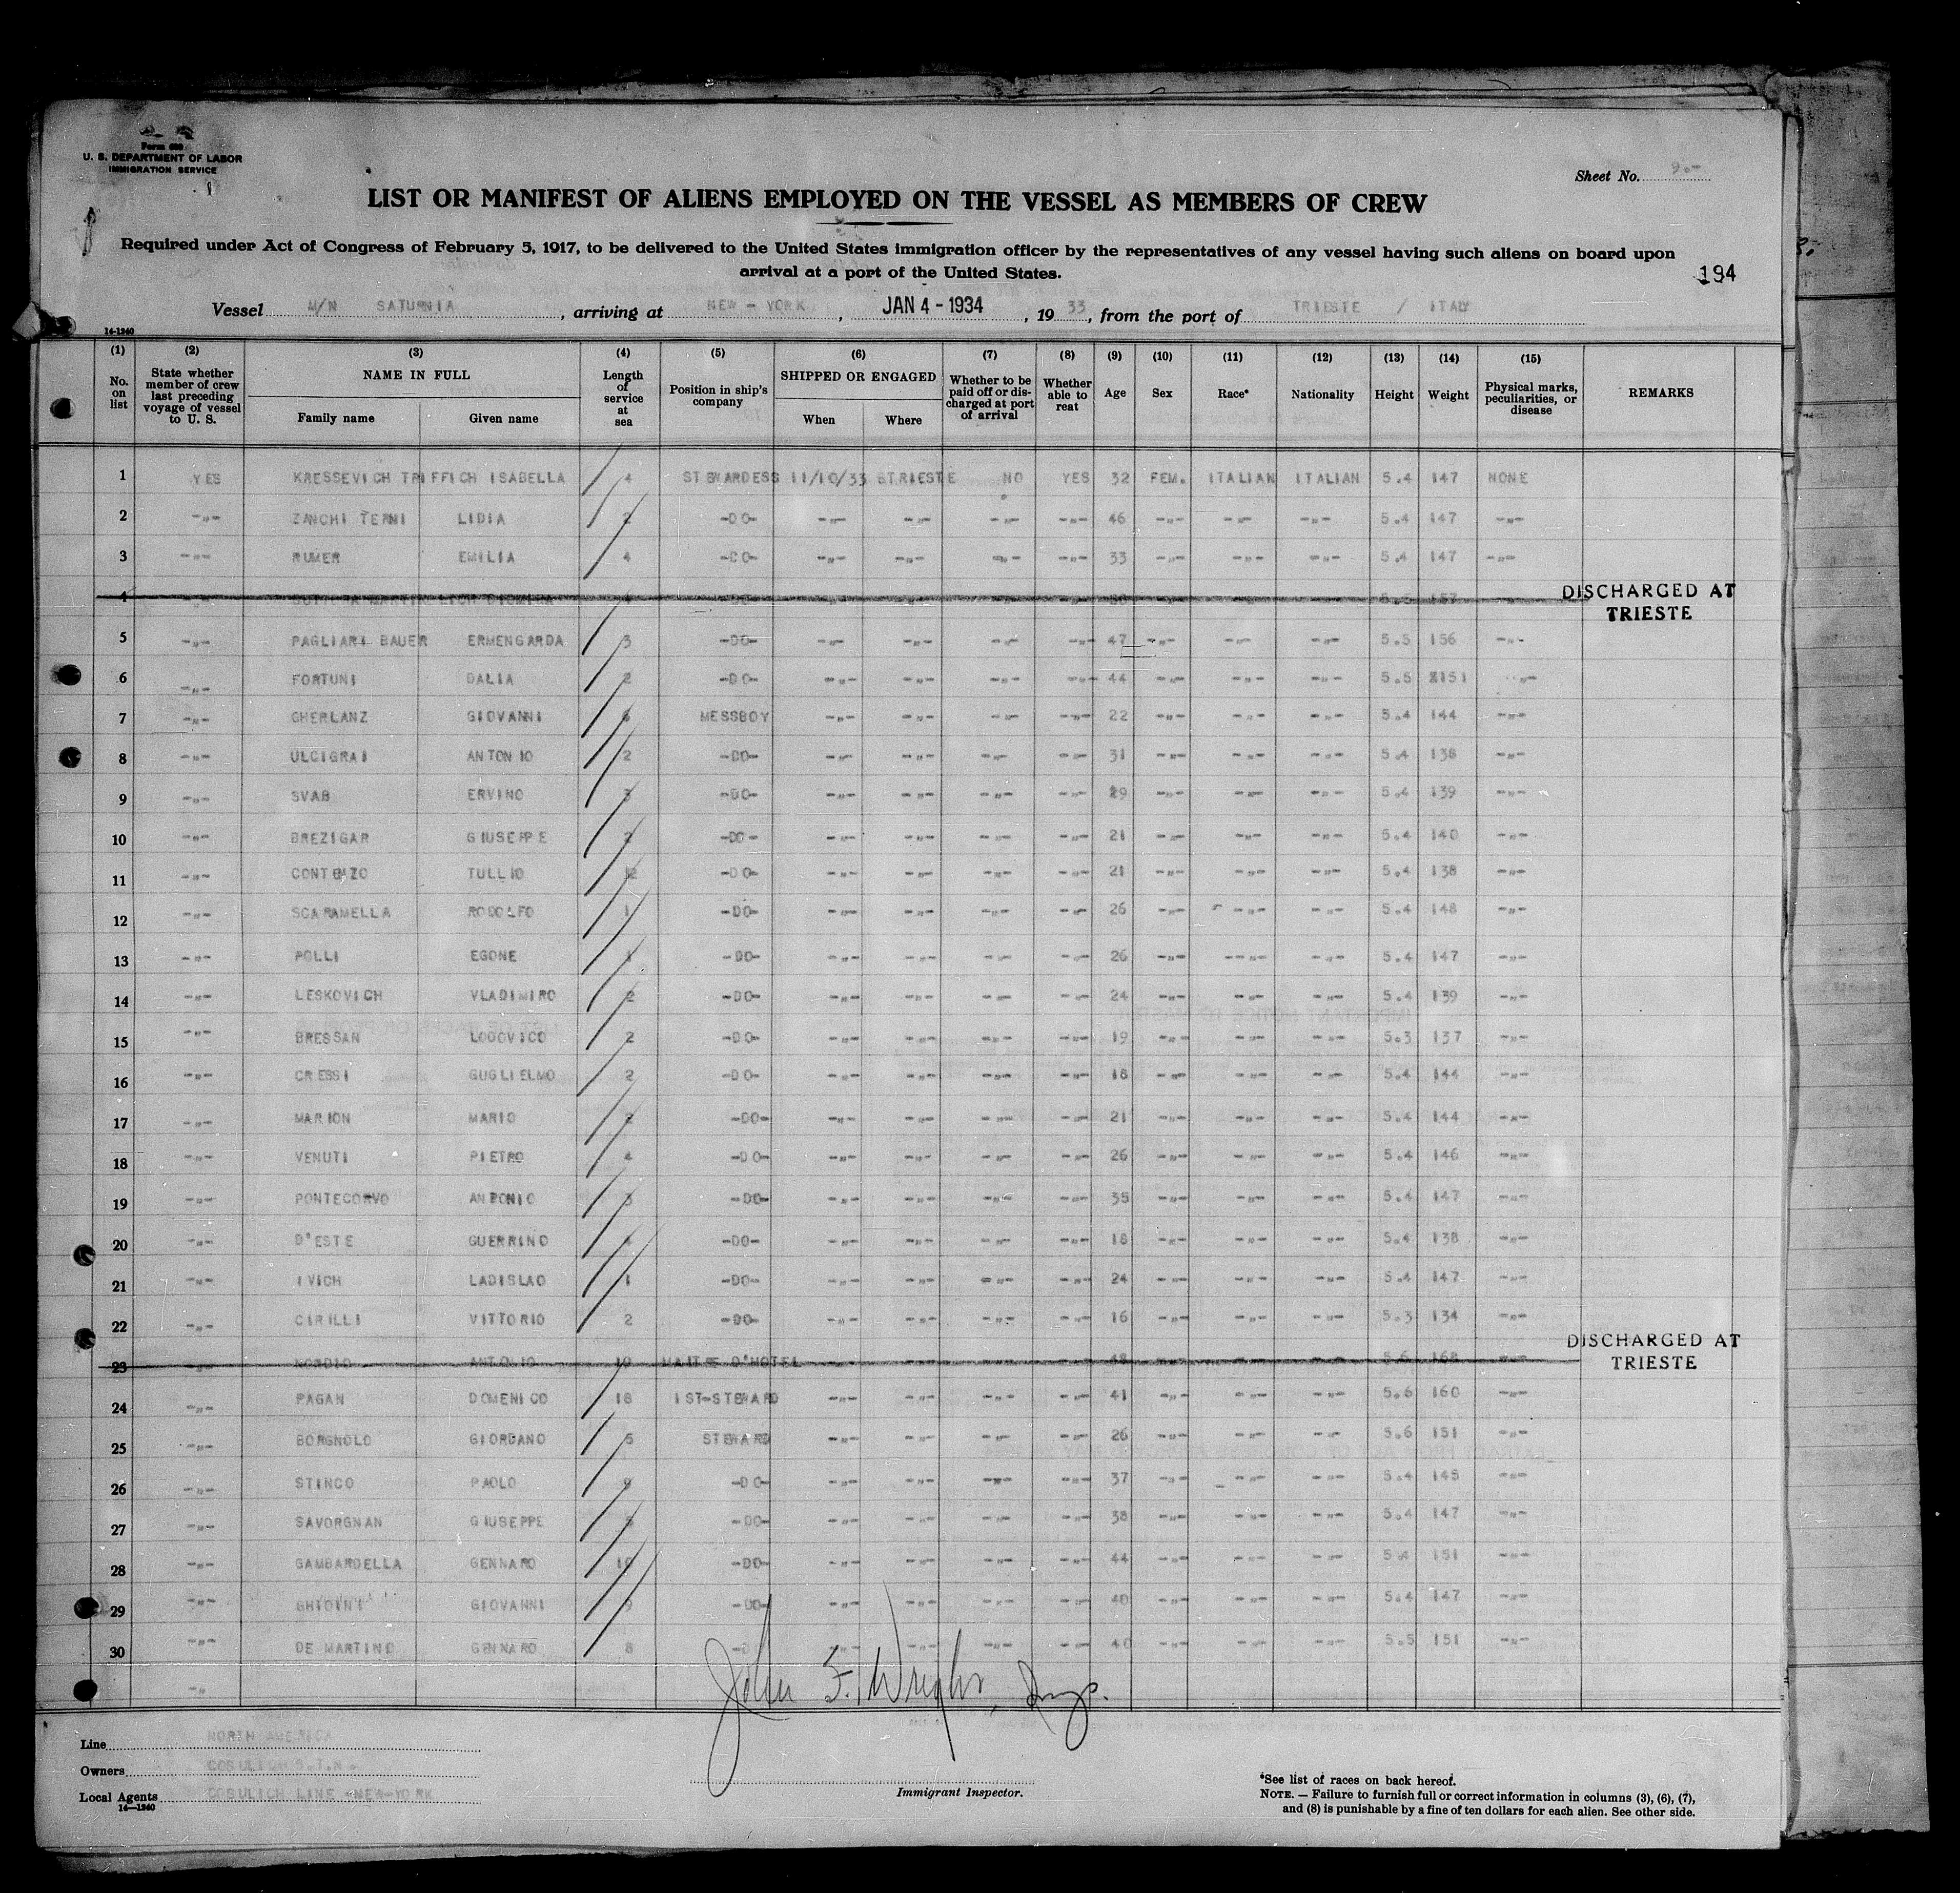 Form 680
U. S. DEPARTMENT OF LABOR
IMMIGRATION SERVICE
Sheet No. 9.-
LIST OR MANIFEST OF ALIENS EMPLOYED ON THE VESSEL AS MEMBERS OF CREW
Required under Act of Congress of February 5, 1917, to be delivered to the United States immigration officer by the representatives of any vessel having such aliens on board upon
arrival at a port of the United States.
194
Vessel M/N SATURNIA, arriving at NEW-YORK, JAN 4-1934, 19 33, from the port of TRIESTE / ITALY
14-1240
(1) (2) (3) (4) (5) (6) (7) (8) (9) (10) (11) (12) (13) (14) (15)
No. on list | State whether member of crew last preceding voyage of vessel to U. S. | NAME IN FULL | Family name | Given name | Length of service at sea | Position in ship's company | SHIPPED OR ENGAGED | When | Where | Whether to be paid off or discharged at port of arrival | Whether able to reat | Age | Sex | Race* | Nationality | Height | Weight | Physical marks, peculiarities, or disease | REMARKS
1 YES KRESSEVICH TRIFFICH ISABELLA 4 STEWARDESS 11/10/33 TRIESTE NO YES 32 FEM. ITALIAN ITALIAN 5.4 147 NONE
2 -"- ZANCHI TERNI LIDIA 2 -DO- -"- -"- -"- -"- 46 -"- -"- -"- 5.4 147 -"-
3 -"- RUMER EMILIA 4 -DO- -"- -"- -"- -"- 33 -"- -"- -"- 5.4 147 -"-
4 DISCHARGED AT TRIESTE
5 -"- PAGLIARI BAUER ERMENGARDA 3 -DO- -"- -"- -"- -"- 47 -"- -"- -"- 5.5 156 -"-
6 -"- FORTUNI DALIA 2 -DO- -"- -"- -"- -"- 44 -"- -"- -"- 5.5 151 -"-
7 -"- GHERLANZ GIOVANNI MESSBOY -"- -"- -"- -"- 22 -"- -"- -"- 5.4 144 -"-
8 -"- ULCIGRAI ANTONIO 2 -DO- -"- -"- -"- -"- 31 -"- -"- -"- 5.4 138 -"-
9 -"- SVAB ERVINO 3 -DO- -"- -"- -"- -"- 29 -"- -"- -"- 5.4 139 -"-
10 -"- BREZIGAR GIUSEPPE 2 -DO- -"- -"- -"- -"- 21 -"- -"- -"- 5.4 140 -"-
11 -"- CONTENZO TULLIO 12 -DO- -"- -"- -"- -"- 21 -"- -"- -"- 5.4 138 -"-
12 -"- SCARAMELLA RODOLFO 1 -DO- -"- -"- -"- -"- 26 -"- -"- -"- 5.4 148 -"-
13 -"- POLLI EGONE 1 -DO- -"- -"- -"- -"- 26 -"- -"- -"- 5.4 147 -"-
14 -"- LESKOVICH VLADIMIRO 2 -DO- -"- -"- -"- -"- 24 -"- -"- -"- 5.4 139 -"-
15 -"- BRESSAN LODOVICO 2 -DO- -"- -"- -"- -"- 19 -"- -"- -"- 5.3 137 -"-
16 -"- CRESSI GUGLIELMO 2 -DO- -"- -"- -"- -"- 18 -"- -"- -"- 5.4 144 -"-
17 -"- MARION MARIO 2 -DO- -"- -"- -"- -"- 21 -"- -"- -"- 5.4 144 -"-
18 -"- VENUTI PIETRO 4 -DO- -"- -"- -"- -"- 26 -"- -"- -"- 5.4 146 -"-
19 -"- PONTECORVO ANTONIO 3 -DO- -"- -"- -"- -"- 35 -"- -"- -"- 5.4 147 -"-
20 -"- D'ESTE GUERRINO 4 -DO- -"- -"- -"- -"- 18 -"- -"- -"- 5.4 138 -"-
21 -"- IVICH LADISLAO 1 -DO- -"- -"- -"- -"- 24 -"- -"- -"- 5.4 147 -"-
22 -"- CIRILLI VITTORIO 2 -DO- -"- -"- -"- -"- 16 -"- -"- -"- 5.3 134 -"-
23 MAITRE D'HOTEL 5.6 168 DISCHARGED AT TRIESTE
24 -"- PAGAN DOMENICO 18 1ST-STEWARD -"- -"- -"- -"- 41 -"- -"- -"- 5.6 160 -"-
25 -"- BORGNOLO GIORDANO 5 STEWARD -"- -"- -"- -"- 26 -"- -"- -"- 5.6 151 -"-
26 -"- STINCO PAOLO 9 -DO- -"- -"- -"- -"- 37 -"- -"- -"- 5.4 145 -"-
27 -"- SAVORGNAN GIUSEPPE -DO- -"- -"- -"- -"- 38 -"- -"- -"- 5.4 147 -"-
28 -"- GAMBARDELLA GENNARO 10 -DO- -"- -"- -"- -"- 44 -"- -"- -"- 5.4 151 -"-
29 -"- GHIDINI GIOVANNI 9 -DO- -"- -"- -"- -"- 40 -"- -"- -"- 5.4 147 -"-
30 -"- DE MARTINO GENNARO 8 -"- -"- -"- -"- 40 -"- -"- -"- 5.5 151 -"-
-"-
John F. Wright, Insp.
Line NORTH AMERICA
Owners COSULICH S.T.N.
Local Agents COSULICH LINE -NEW-YORK
14—1240
Immigrant Inspector.
*See list of races on back hereof.
NOTE. — Failure to furnish full or correct information in columns (3), (6), (7),
and (8) is punishable by a fine of ten dollars for each alien. See other side.